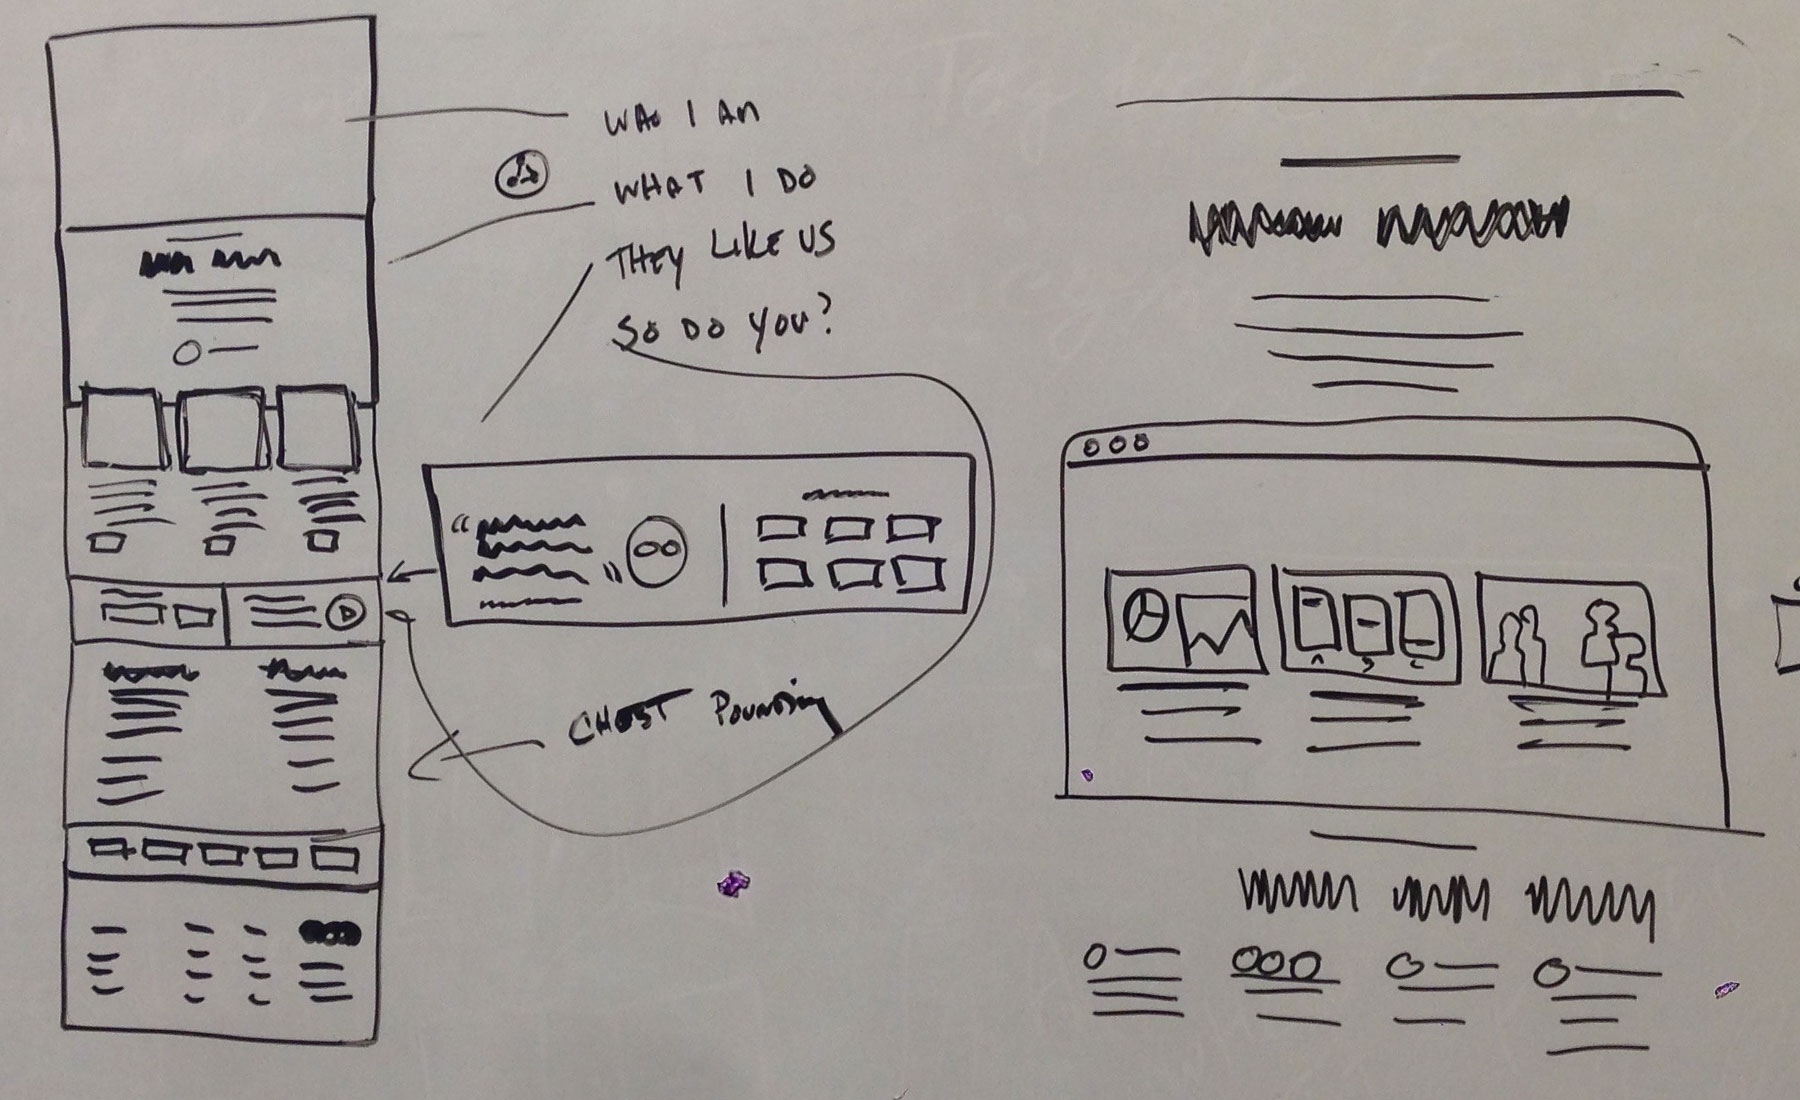 WHO I AM
WHAT I DO
THEY LIKE US
SO DO YOU?
CHEST POUNDING
A B C